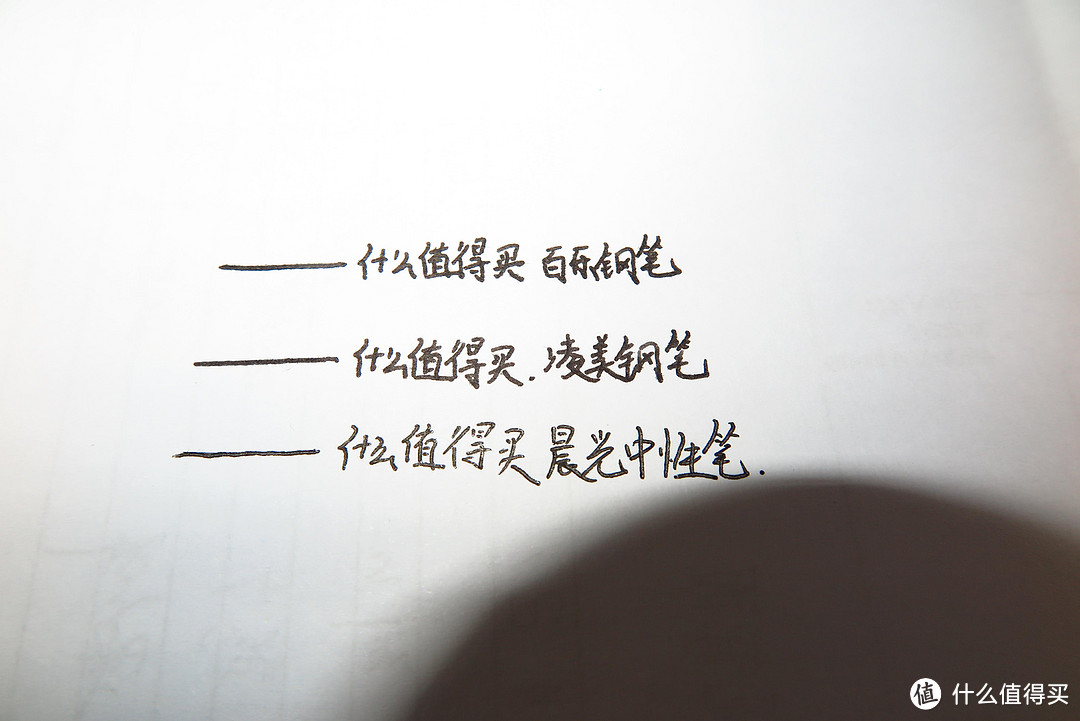 —— 什么值得买 百乐钢笔
—— 什么值得买. 凌美钢笔
—— 什么值得买 晨光中性笔.
值 什么值得买